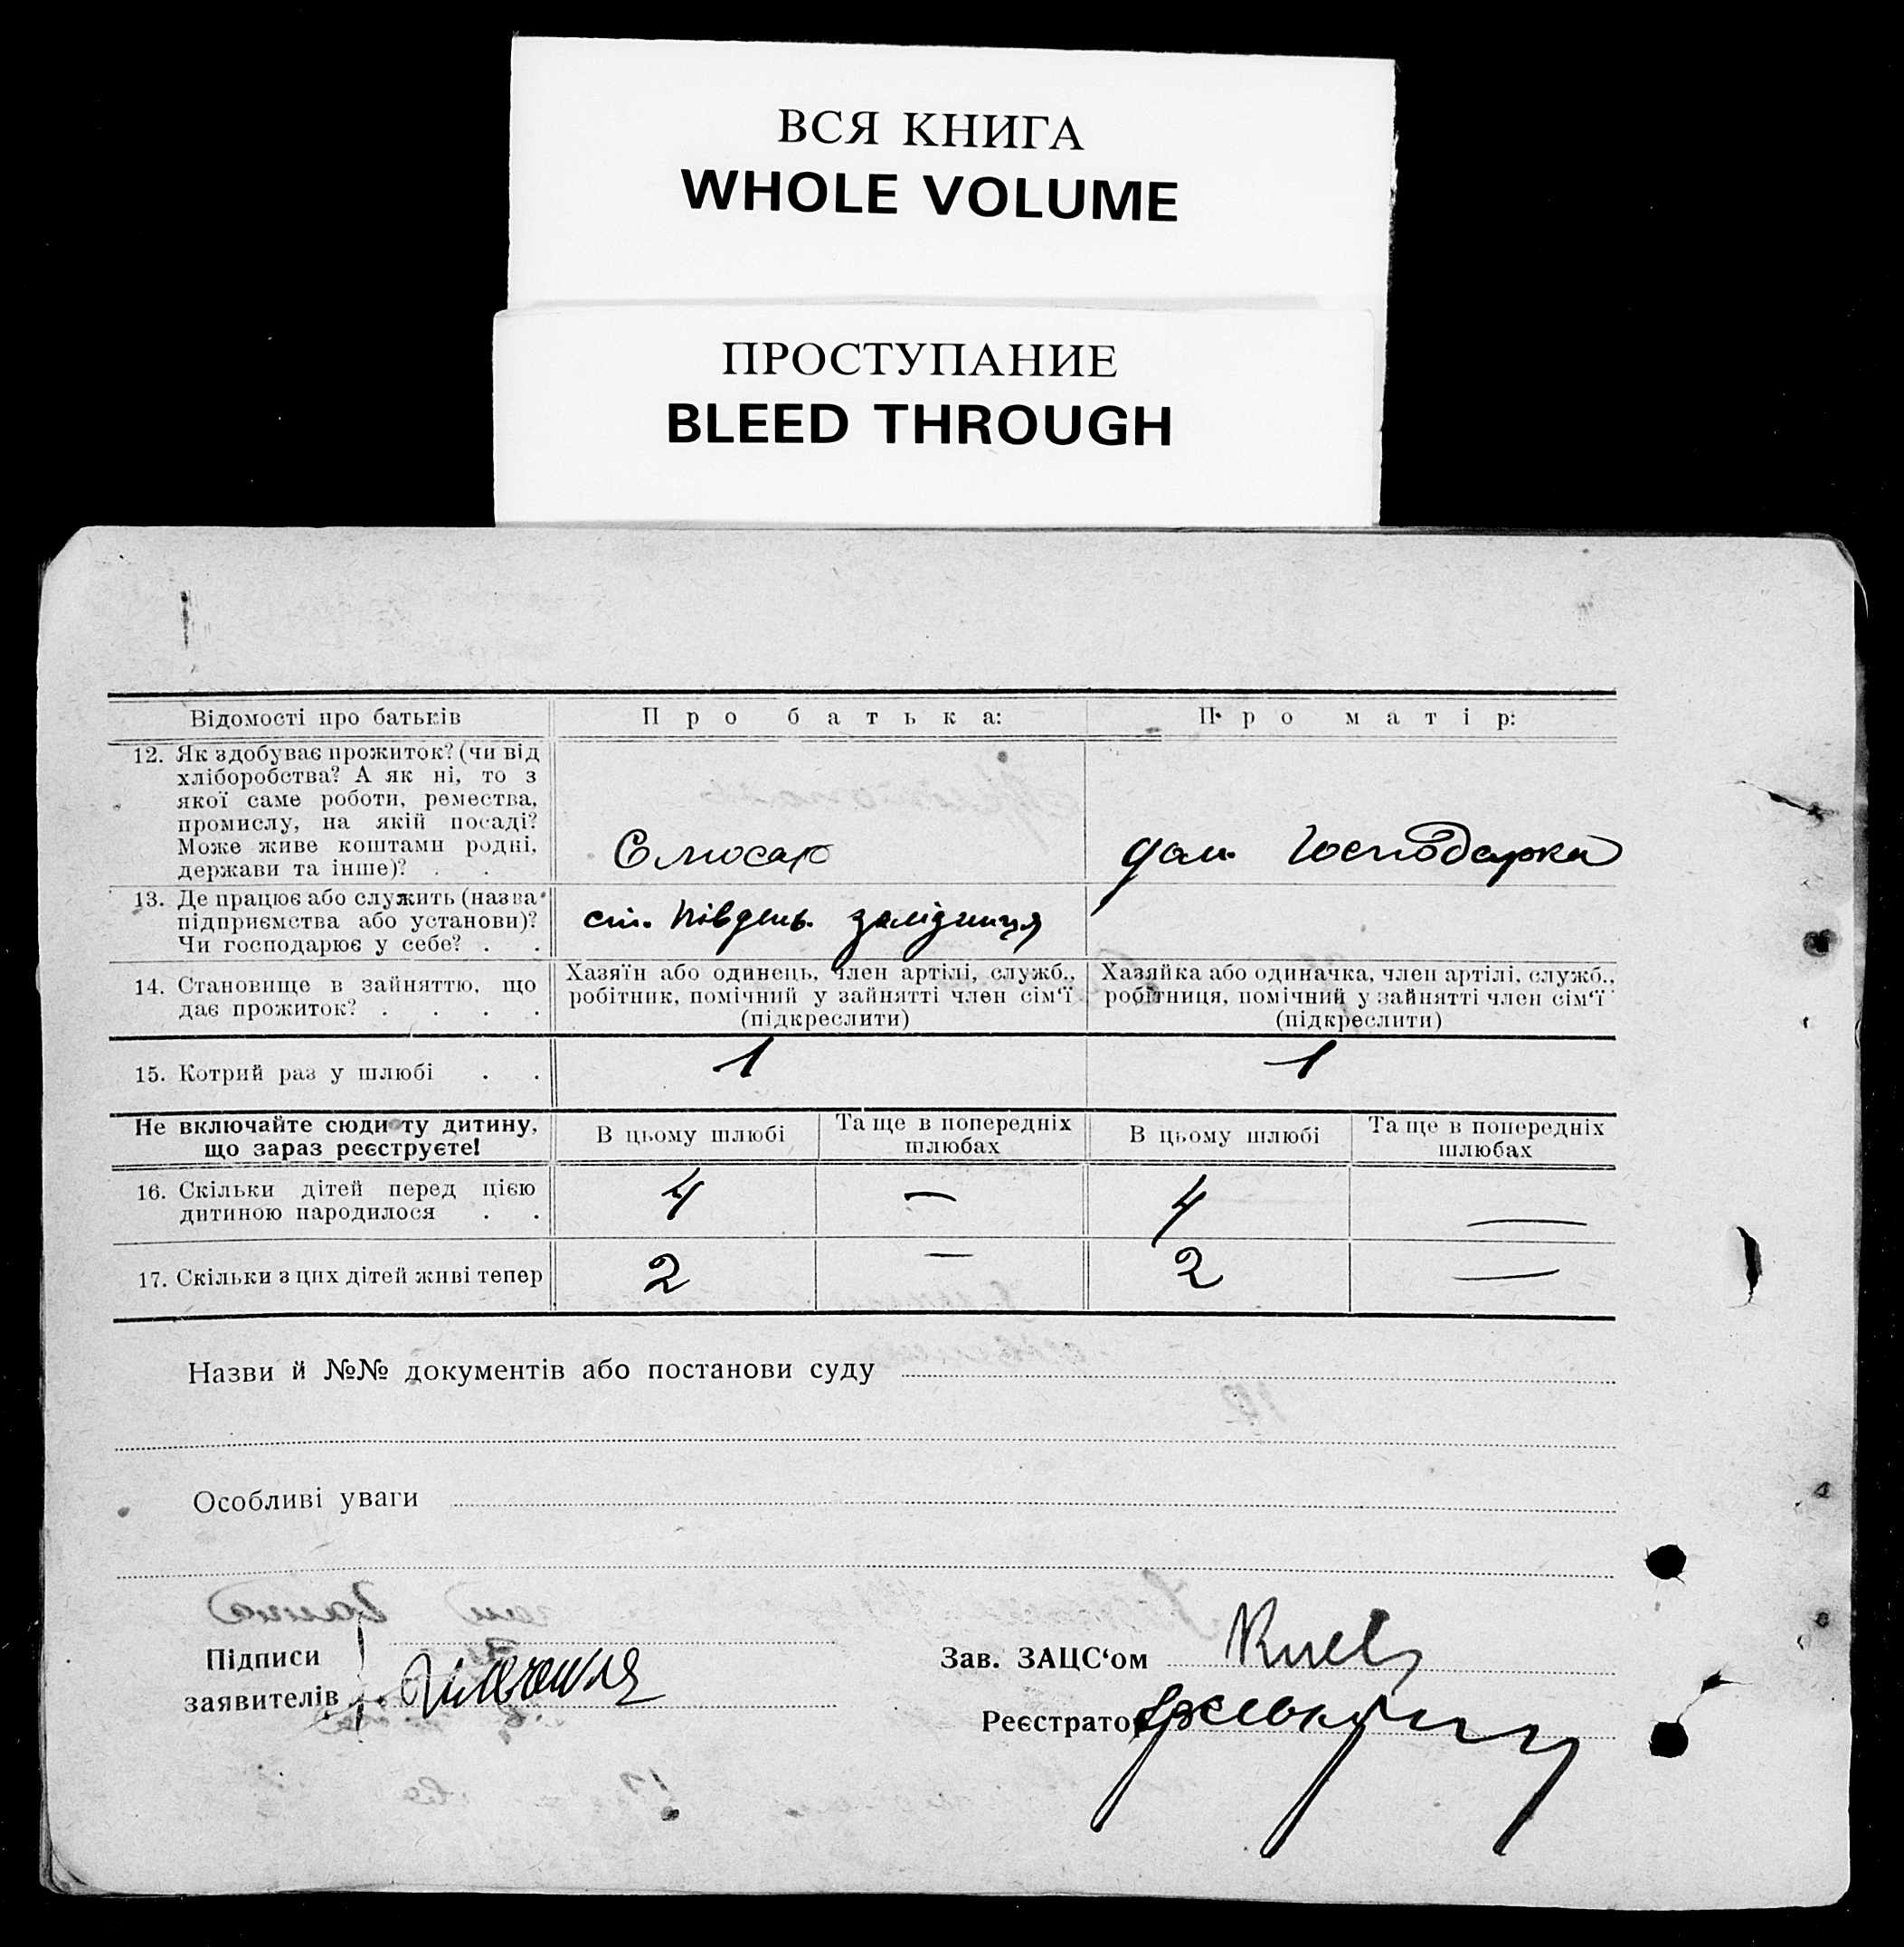 ВСЯ КНИГА
WHOLE VOLUME
ПРОСТУПАНИЕ
BLEED THROUGH
Відомості про батьків
Про батька:
Про матір:
12. Як здобуває прожиток? (чи від
хліборобства? А як ні, то з
якої саме роботи, ремества,
промислу, на якій посаді?
Може живе коштами родні,
держави та інше)? . .
Слюсар
дом. Господарка
13. Де працює або служить (назва
підприємства або установи)?
Чи господарює у себе? . .
ст. Південь. залізниця
14. Становище в зайняттю, що
дає прожиток? . . . .
Хазяїн або одинець, член артілі, служб.,
робітник, помічний у зайнятті член сім'ї
(підкреслити)
Хазяйка або одиначка, член артілі, служб.,
робітниця, помічний у зайнятті член сім'ї
(підкреслити)
15. Котрий раз у шлюбі . .
1
1
Не включайте сюди ту дитину,
що зараз реєструєте!
В цьому шлюбі
Та ще в попередніх
шлюбах
В цьому шлюбі
Та ще в попередніх
шлюбах
16. Скільки дітей перед цією
дитиною народилося . .
4
—
4
—
17. Скільки з цих дітей живі тепер
2
—
2
—
Назви й №№ документів або постанови суду
Особливі уваги
Підписи
заявителів
Зав. ЗАЦС'ом
Реєстратор